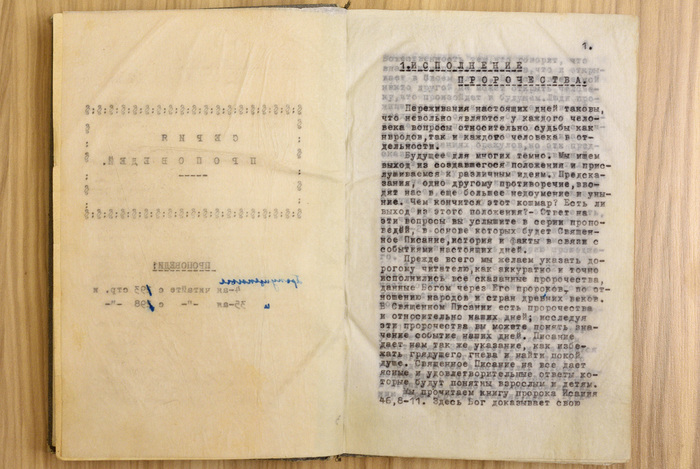 СЕРИЯ
ПРОПОВЕДЕЙ.
Пропущенные
ПРОПОВЕДИ!
4-ая читайте с 193 стр. и
35-ая -"- с 198 -"-
1.
1.ИСПОЛНЕНИЕ
ПРОРОЧЕСТВА.
Переживания настоящих дней таковы,
что невольно являются у каждого чело-
века вопросы относительно судьбы как
народов,так и каждого человека в от-
дельности.
Будущее для многих темно. Мы ищем
выход из создавшегося положения и прис-
лушиваемся к различным идеям. Предска-
зания, одно другому противоречие,вво-
дит нас в еще большее недоумение и уны-
ние. Чем кончится этот кошмар? Есть ли
выход из этого положения?- Ответ на
эти вопросы вы услышите в серии пропо-
ведей, в основе которых будет Священ-
ное Писание,история и факты в связи с
событиями настоящих дней.
Прежде всего мы желаем указать до-
рогому читателю,как аккуратно и точно
исполнились все сказанные пророчества,
данные Богом через Его пророков, по от-
ношению народов и стран древних веков.
В Священном Писании есть пророчества
и относительно наших дней; исследуя
эти пророчества вы можете понять зна-
чение событие наших дней. Писание
дает нам так же указание, как избе-
жать грядущего гнева и найти покой
душе. Священное Писание на все дает
ясные и удовлетворительные ответы ко-
торые будут понятны взрослым и детям.
Мы прочитаем книгу пророка Исаия
46,8-11. Здесь Бог доказывает свою